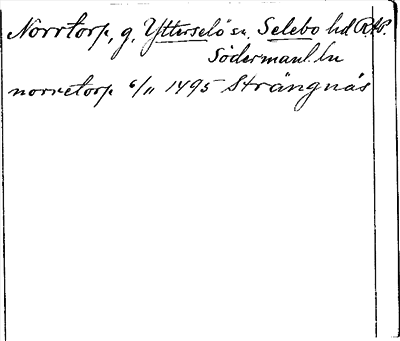 Norrtorp, g. Ytterselö sn. Selebo hd R.A.P.
Södermanl. ln
norretorp 6/11 1495 Strängnäs